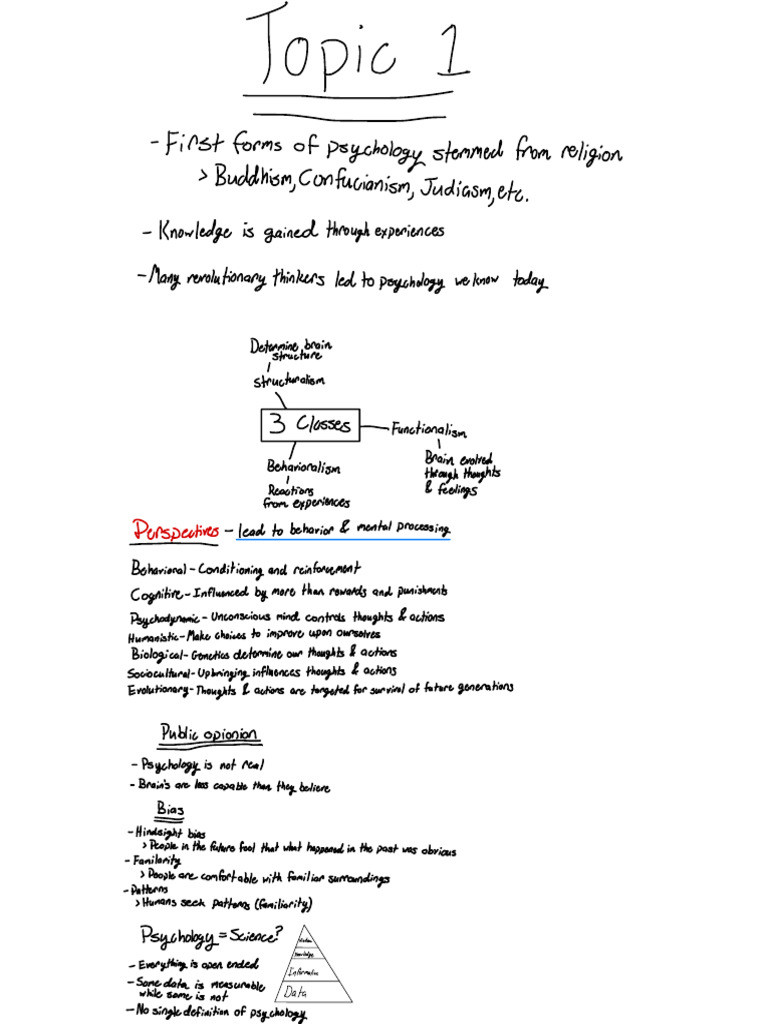 Topic 1
- First forms of psychology stemmed from religion
> Buddhism, Confucianism, Judiasm, etc.
- Knowledge is gained through experiences
- Many revolutionary thinkers led to psychology we know today
Determine brain
structure
structuralism
3 Classes
Functionalism
Brain evolved
through thoughts
& feelings
Behavioralism
Reactions
from experiences
Perspectives - lead to behavior & mental processing
Behavioral - Conditioning and reinforcement
Cognitive - Influenced by more than rewards and punishments
Psychodynamic - Unconscious mind controls thoughts & actions
Humanistic - Make choices to improve upon ourselves
Biological - Genetics determine our thoughts & actions
Sociocultural - Upbringing influences thoughts & actions
Evolutionary - Thoughts & actions are targeted for survival of future generations
Public opionion
- Psychology is not real
- Brain's are less capable than they believe
Bias
- Hindsight bias
> People in the future feel that what happened in the past was obvious
- Familarity
> People are comfortable with familiar surroundings
- Patterns
> Humans seek patterns (familiarity)
Psychology = Science?
- Everything is open ended
- Some data is measurable
while some is not
- No single definition of psychology
Wisdom
Knowledge
Information
Data